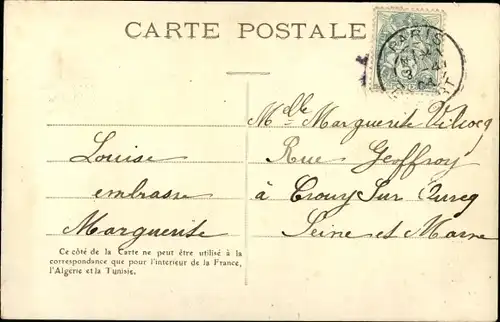 CARTE POSTALE
PARIS
Mlle Marguerite Vilcocq
Rue Geoffroy
à Crouy Sur Ourcq
Seine et Marne
Louise
embrasse
Marguerite
Ce côté de la Carte ne peut être utilisé à la
correspondance que pour l'interieur de la France,
l'Algérie et la Tunisie.